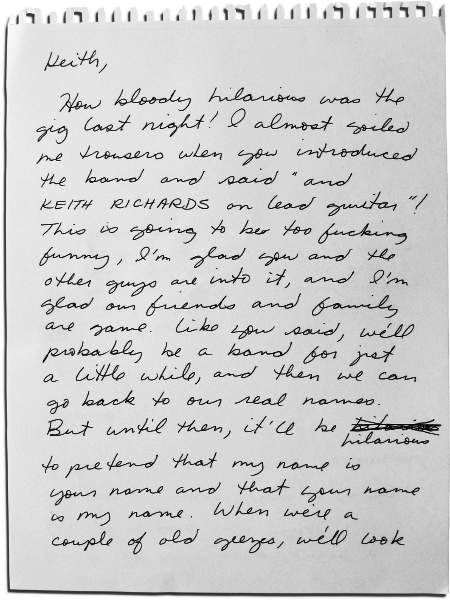 Keith,
How bloody hilarious was the
gig last night! I almost soiled
me trousers when you introduced
the band and said "and
KEITH RICHARDS on lead guitar"!
This is going to be too fucking
funny, I'm glad you and the
other guys are into it, and I'm
glad our friends and family
are game. Like you said, we'll
probably be a band for just
a little while, and then we can
go back to our real names.
But until then, it'll be hilarious
hilarious
to pretend that my name is
your name and that your name
is my name. When we're a
couple of old geezes, we'll look